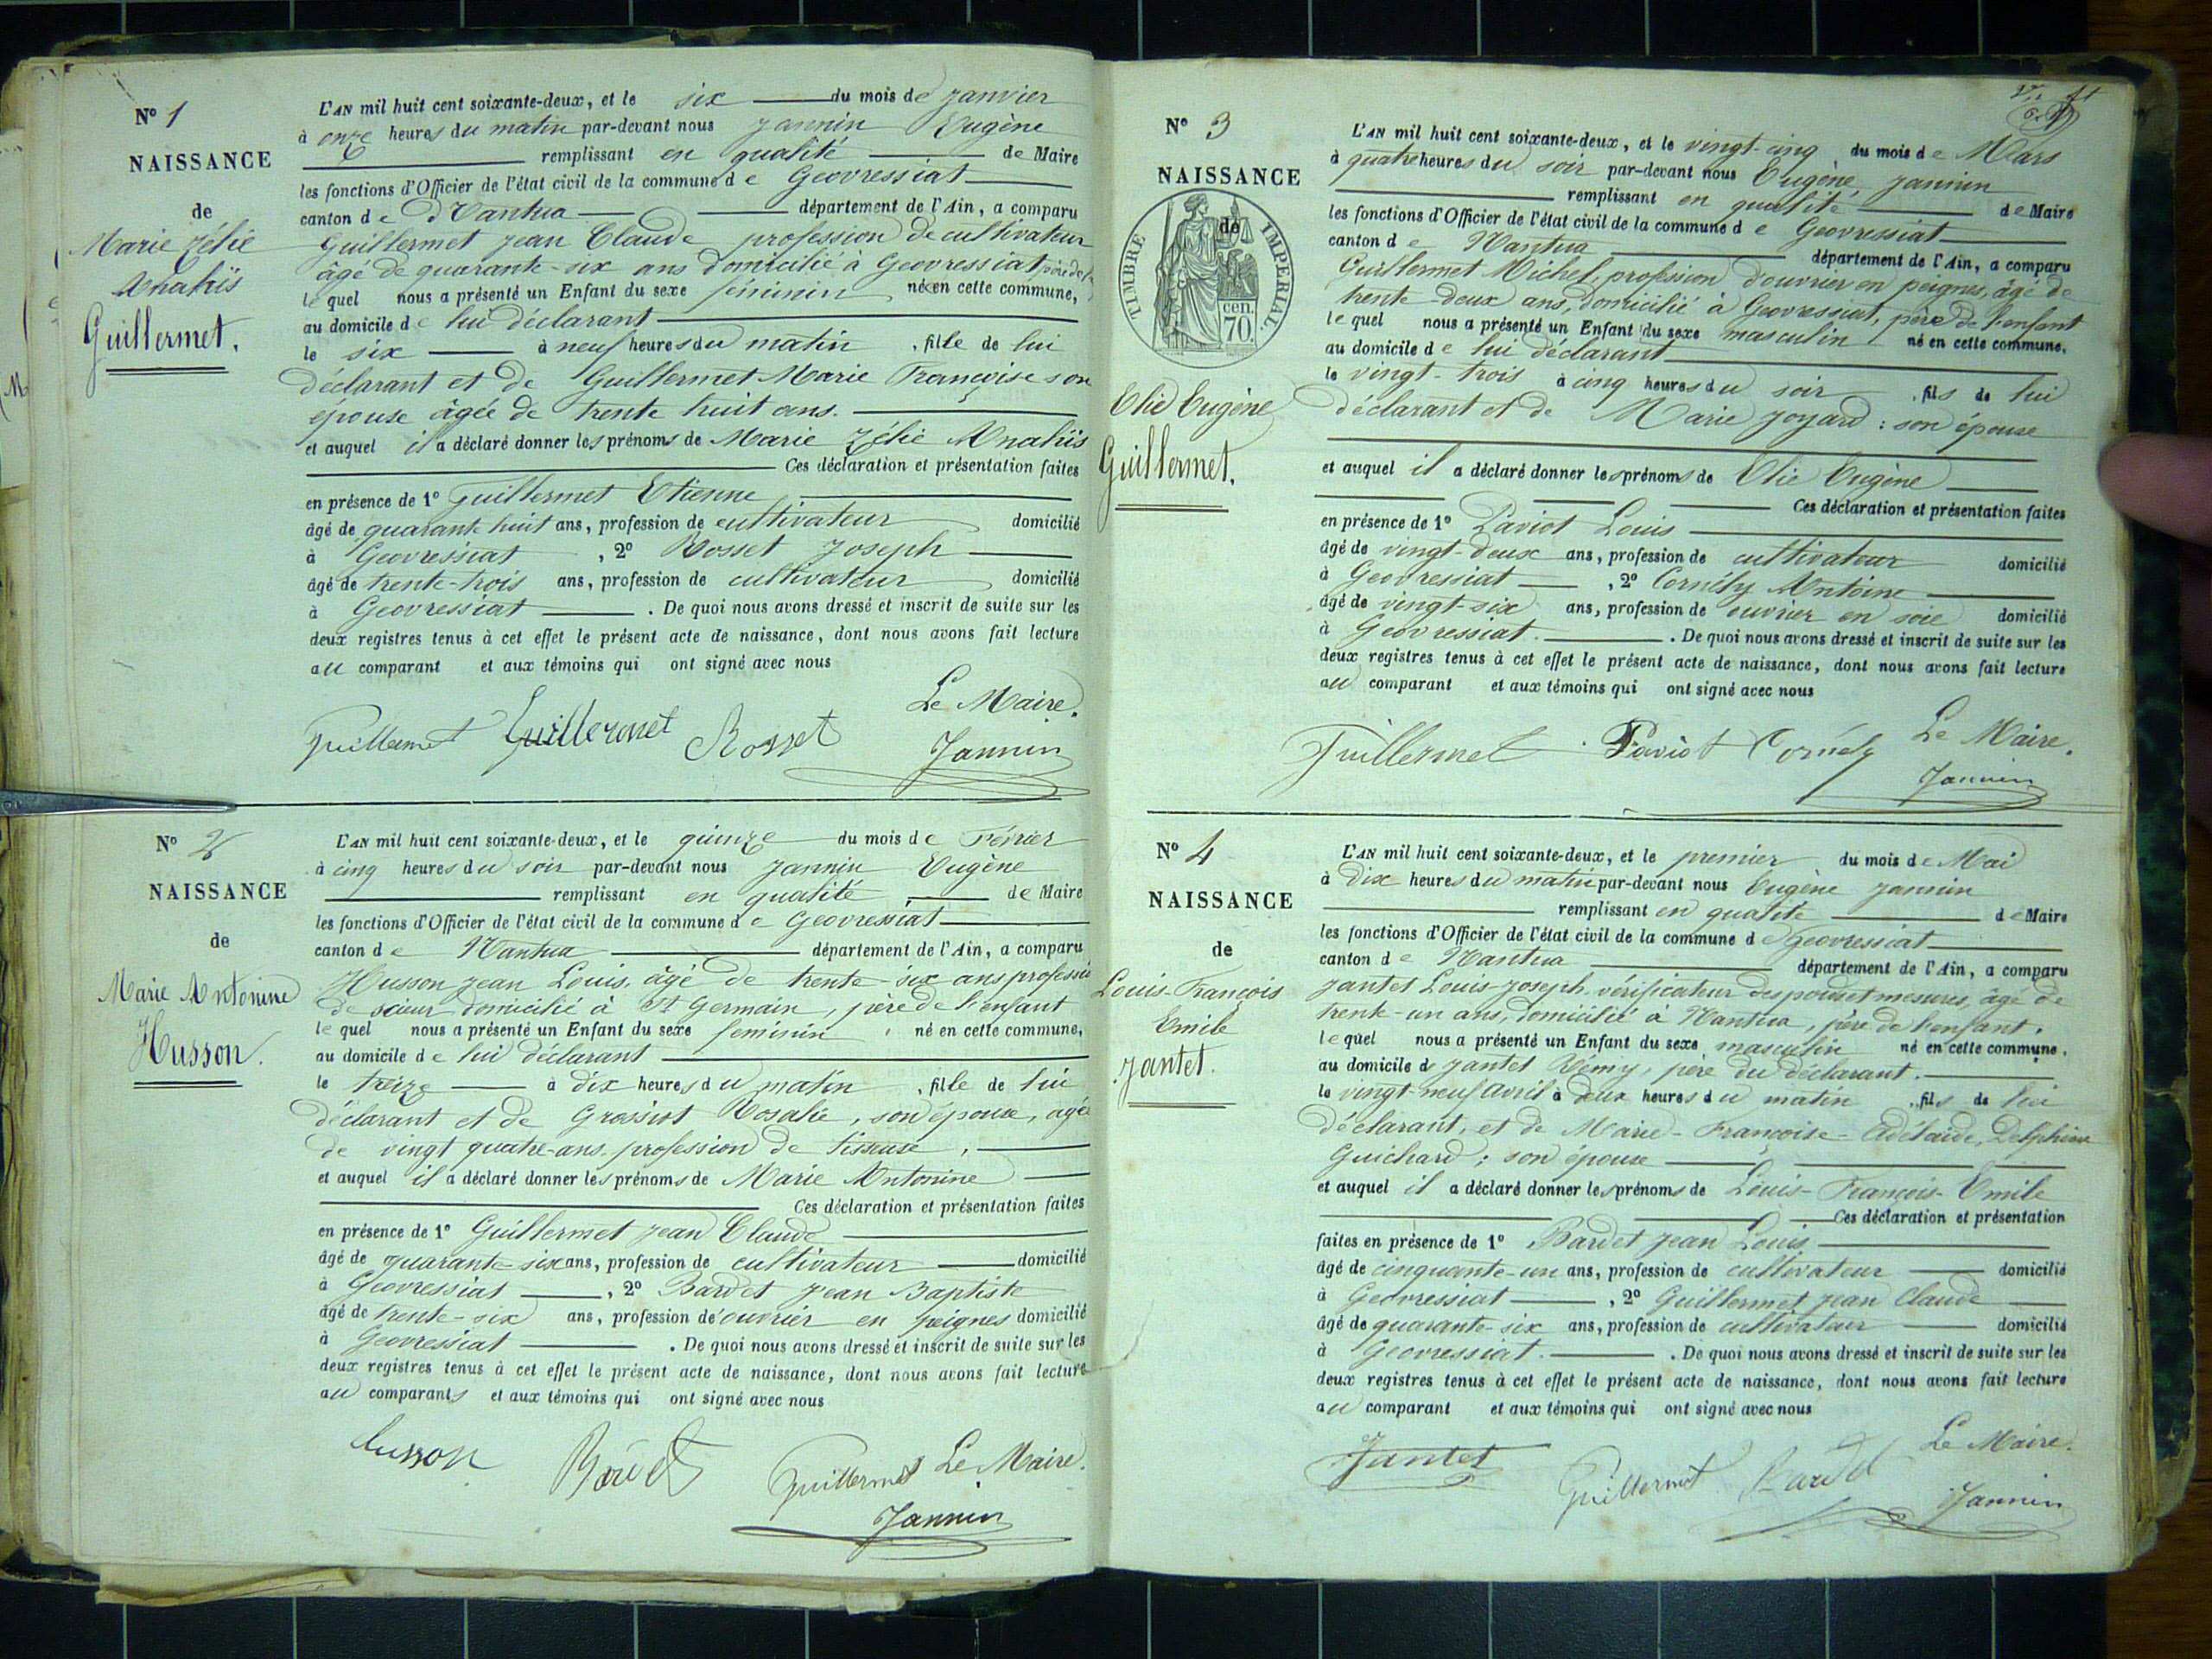 N° 1
NAISSANCE
de
Marie Zélie
Anahïs
Guillermet.
L'AN mil huit cent soixante-deux, et le six du mois de janvier
à onze heures du matin par-devant nous Jannin Eugène
remplissant en qualité de Maire
les fonctions d'Officier de l'état civil de la commune de Geovressiat
canton de Nantua département de l'Ain, a comparu
Guillermet Jean Claude profession de cultivateur
âgé de quarante-six ans domicilié à Geovressiat père de
lequel nous a présenté un Enfant du sexe féminin né en cette commune,
au domicile de lui déclarant
le six à neuf heures du matin, fille de lui
déclarant et de Guillermet Marie Françoise son
épouse âgée de trente huit ans.
et auquel il a déclaré donner les prénoms de Marie Zélie Anahïs
Ces déclaration et présentation faites
en présence de 1° Guillermet Etienne
âgé de quarante huit ans, profession de cultivateur domicilié
à Geovressiat, 2° Rosset Joseph
âgé de trente-trois ans, profession de cultivateur domicilié
à Geovressiat. De quoi nous avons dressé et inscrit de suite sur les
deux registres tenus à cet effet le présent acte de naissance, dont nous avons fait lecture
au comparant et aux témoins qui ont signé avec nous
Le Maire.
Guillermet Guillermet Rosset Jannin
N° 2
NAISSANCE
de
Marie Antonine
Husson.
L'AN mil huit cent soixante-deux, et le quinze du mois de Février
à cinq heures du soir par-devant nous Jannin Eugène
remplissant en qualité de Maire
les fonctions d'Officier de l'état civil de la commune de Geovressiat
canton de Nantua département de l'Ain, a comparu
Husson Jean Louis, âgé de trente-six ans profession
de scieur domicilié à St Germain, père de l'enfant
lequel nous a présenté un Enfant du sexe féminin, né en cette commune,
au domicile de lui déclarant
le treize à dix heures du matin, fille de lui
déclarant et de Grossiot Rosalie, son épouse, agée
de vingt quatre-ans, profession de tisseuse,
et auquel il a déclaré donner les prénoms de Marie Antonine
Ces déclaration et présentation faites
en présence de 1° Guillermet Jean Claude
âgé de quarante-six ans, profession de cultivateur domicilié
à Geovressiat, 2° Bardet Jean Baptiste
âgé de trente-six ans, profession d'ouvrier en peignes domicilié
à Geovressiat. De quoi nous avons dressé et inscrit de suite sur les
deux registres tenus à cet effet le présent acte de naissance, dont nous avons fait lecture
au comparants et aux témoins qui ont signé avec nous
husson Bardet Guillermet Le Maire.
Jannin
N° 3
NAISSANCE
de
TIMBRE IMPERIAL
cen.
70.
Elie Eugène
Guillermet.
L'AN mil huit cent soixante-deux, et le vingt-cinq du mois de Mars
à quatre heures du soir par-devant nous Eugène, Jannin
remplissant en qualité de Maire
les fonctions d'Officier de l'état civil de la commune de Geovressiat
canton de Nantua département de l'Ain, a comparu
Guillermet Michel, profession d'ouvrier en peignes, âgé de
trente-deux ans, domicilié à Geovressiat, père de l'enfant
lequel nous a présenté un Enfant du sexe masculin né en cette commune,
au domicile de lui déclarant
le vingt-trois à cinq heures du soir, fils de lui
déclarant et de Marie Joyard: son épouse
et auquel il a déclaré donner les prénoms de Elie Eugène
Ces déclaration et présentation faites
en présence de 1° Paviot Louis
âgé de vingt-deux ans, profession de cultivateur domicilié
à Geovressiat, 2° Cornély Antoine
âgé de vingt-six ans, profession de ouvrier en soie domicilié
à Geovressiat. De quoi nous avons dressé et inscrit de suite sur les
deux registres tenus à cet effet le présent acte de naissance, dont nous avons fait lecture
au comparant et aux témoins qui ont signé avec nous
Guillermet Paviot Cornély Le Maire.
Jannin
N° 4
NAISSANCE
de
Louis-François
Emile
Jantet.
L'AN mil huit cent soixante-deux, et le premier du mois de Mai
à dix heures du matin par-devant nous Eugène Jannin
remplissant en qualité de Maire
les fonctions d'Officier de l'état civil de la commune de Geovressiat
canton de Nantua département de l'Ain, a comparu
Jantet Louis-Joseph, vérificateur des poids et mesures, âgé de
trente-un ans, domicilié à Nantua, père de l'enfant.
lequel nous a présenté un Enfant du sexe masculin né en cette commune,
au domicile de Jantet Rémy, père du déclarant.
le vingt-neuf avril à deux heures du matin, fils de lui
déclarant, et de Marie-Françoise-Adélaïde, Delphine
Guichard; son épouse
et auquel il a déclaré donner les prénoms de Louis-François-Emile
Ces déclaration et présentation
faites en présence de 1° Bardet Jean Louis
âgé de cinquante-un ans, profession de cultivateur domicilié
à Geovressiat, 2° Guillermet Jean Claude
âgé de quarante-six ans, profession de cultivateur domicilié
à Geovressiat. De quoi nous avons dressé et inscrit de suite sur les
deux registres tenus à cet effet le présent acte de naissance, dont nous avons fait lecture
au comparant et aux témoins qui ont signé avec nous
Le Maire.
Jantet Guillermet Bardet Jannin